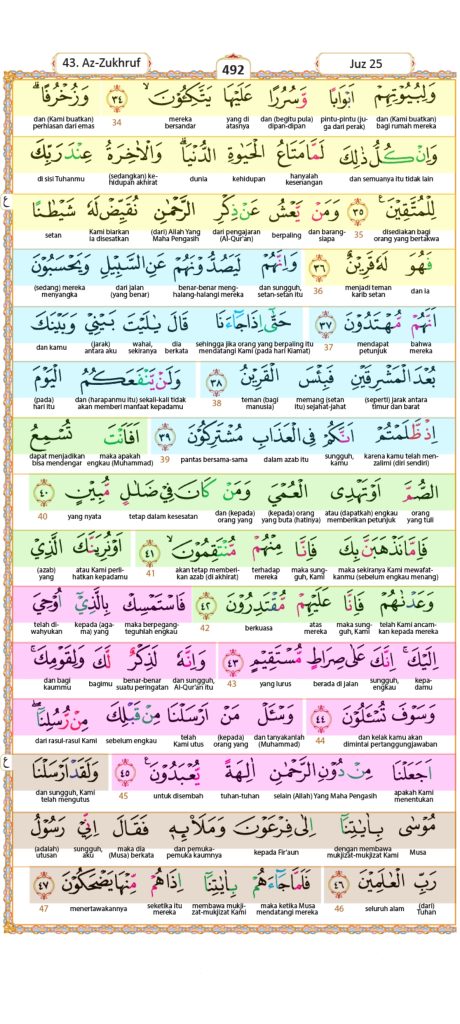 43. Az-Zukhruf
492
Juz 25
وَلِبُيُوْتِهِمْ اَبْوَابًا وَّسُرُرًا عَلَيْهَا يَتَّكِـُٔوْنَۙ ٣٤ وَزُخْرُفًاۗ
dan (Kami buatkan) bagi rumah mereka pintu-pintu (juga dari perak) dan (begitu pula) dipan-dipan yang di atasnya mereka bersandar 34 dan (Kami buatkan) perhiasan dari emas
وَاِنْ كُلُّ ذٰلِكَ لَمَّا مَتَاعُ الْحَيٰوةِ الدُّنْيَاۗ وَالْاٰخِرَةُ عِنْدَ رَبِّكَ
dan semuanya itu tidak lain hanyalah kesenangan kehidupan dunia (sedangkan) kehidupan akhirat di sisi Tuhanmu
لِلْمُتَّقِيْنَ ٣٥ وَمَنْ يَّعْشُ عَنْ ذِكْرِ الرَّحْمٰنِ نُقَيِّضْ لَهٗ شَيْطٰنًا
disediakan bagi orang yang bertakwa 35 dan barang-siapa berpaling dari pengajaran (Al-Qur'an) (dari) Allah Yang Maha Pengasih Kami biarkan ia disesatkan setan
ع
فَهُوَ لَهٗ قَرِيْنٌ ٣٦ وَاِنَّهُمْ لَيَصُدُّوْنَهُمْ عَنِ السَّبِيْلِ وَيَحْسَبُوْنَ
dan ia menjadi teman karib setan 36 dan sungguh, setan-setan itu benar-benar menghalang-halangi mereka dari jalan (yang benar) (sedang) mereka menyangka
اَنَّهُمْ مُّهْتَدُوْنَ ٣٧ حَتّٰىٓ اِذَا جَاۤءَنَا قَالَ يٰلَيْتَ بَيْنِيْ وَبَيْنَكَ
bahwa mereka mendapat petunjuk 37 sehingga jika orang yang berpaling itu mendatangi Kami (pada hari Kiamat) dia berkata wahai, sekiranya (jarak) antara aku dan kamu
بُعْدَ الْمَشْرِقَيْنِ فَبِئْسَ الْقَرِيْنُ ٣٨ وَلَنْ يَّنْفَعَكُمُ الْيَوْمَ
(seperti) jarak antara timur dan barat memang (setan itu) sejahat-jahat teman (bagi manusia) 38 dan (harapanmu itu) sekali-kali tidak akan memberi manfaat kepadamu (pada) hari itu
اِذْ ظَّلَمْتُمْ اَنَّكُمْ فِى الْعَذَابِ مُشْتَرِكُوْنَ ٣٩ اَفَاَنْتَ تُسْمِعُ
karena kamu telah menzalimi (diri sendiri) sungguh, kamu dalam azab itu pantas bersama-sama 39 maka apakah engkau (Muhammad) dapat menjadikan bisa mendengar
الصُّمَّ اَوْ تَهْدِى الْعُمْيَ وَمَنْ كَانَ فِيْ ضَلٰلٍ مُّبِيْنٍ ٤٠
orang yang tuli atau (dapatkah) engkau memberikan petunjuk (kepada) orang yang buta (hatinya) dan (kepada) orang yang tetap dalam kesesatan yang nyata 40
فَاِمَّا نَذْهَبَنَّ بِكَ فَاِنَّا مِنْهُمْ مُّنْتَقِمُوْنَۙ ٤١ اَوْ نُرِيَنَّكَ الَّذِيْ
maka sekiranya Kami mewafatkanmu (sebelum engkau menang) maka sungguh, Kami terhadap mereka akan tetap memberikan azab (di akhirat) 41 atau Kami perlihatkan kepadamu (azab) yang
وَعَدْنٰهُمْ فَاِنَّا عَلَيْهِمْ مُّقْتَدِرُوْنَ ٤٢ فَاسْتَمْسِكْ بِالَّذِيْٓ اُوْحِيَ
telah Kami ancamkan kepada mereka maka sungguh, Kami atas mereka berkuasa 42 maka berpegang-teguhlah engkau kepada (agama) yang telah diwahyukan
اِلَيْكَۚ اِنَّكَ عَلٰى صِرَاطٍ مُّسْتَقِيْمٍ ٤٣ وَاِنَّهٗ لَذِكْرٌ لَّكَ وَلِقَوْمِكَۚ
kepadamu sungguh, engkau berada di jalan yang lurus 43 dan sungguh, Al-Qur'an itu benar-benar suatu peringatan bagimu dan bagi kaummu
وَسَوْفَ تُسْـَٔلُوْنَ ٤٤ وَسْـَٔلْ مَنْ اَرْسَلْنَا مِنْ قَبْلِكَ مِنْ رُّسُلِنَآ
dan kelak kamu akan dimintai pertanggungjawaban 44 dan tanyakanlah (Muhammad) (kepada) orang yang Kami utus sebelum engkau dari rasul-rasul Kami
اَجَعَلْنَا مِنْ دُوْنِ الرَّحْمٰنِ اٰلِهَةً يُّعْبَدُوْنَ ٤٥ وَلَقَدْ اَرْسَلْنَا
apakah Kami menentukan selain (Allah) Yang Maha Pengasih tuhan-tuhan untuk disembah 45 dan sungguh, Kami telah mengutus
ع
مُوْسٰى بِاٰيٰتِنَآ اِلٰى فِرْعَوْنَ وَمَلَا۟ىِٕهٖ فَقَالَ اِنِّيْ رَسُوْلُ
Musa dengan membawa mukjizat-mukjizat Kami kepada Fir'aun dan pemuka-pemuka kaumnya maka dia (Musa) berkata sungguh, aku (adalah) utusan
رَبِّ الْعٰلَمِيْنَ ٤٦ فَلَمَّا جَاۤءَهُمْ بِاٰيٰتِنَآ اِذَا هُمْ مِّنْهَا يَضْحَكُوْنَ ٤٧
(dari) Tuhan seluruh alam 46 maka ketika Musa mendatangi mereka membawa mukjizat-mukjizat Kami seketika itu mereka menertawakannya 47